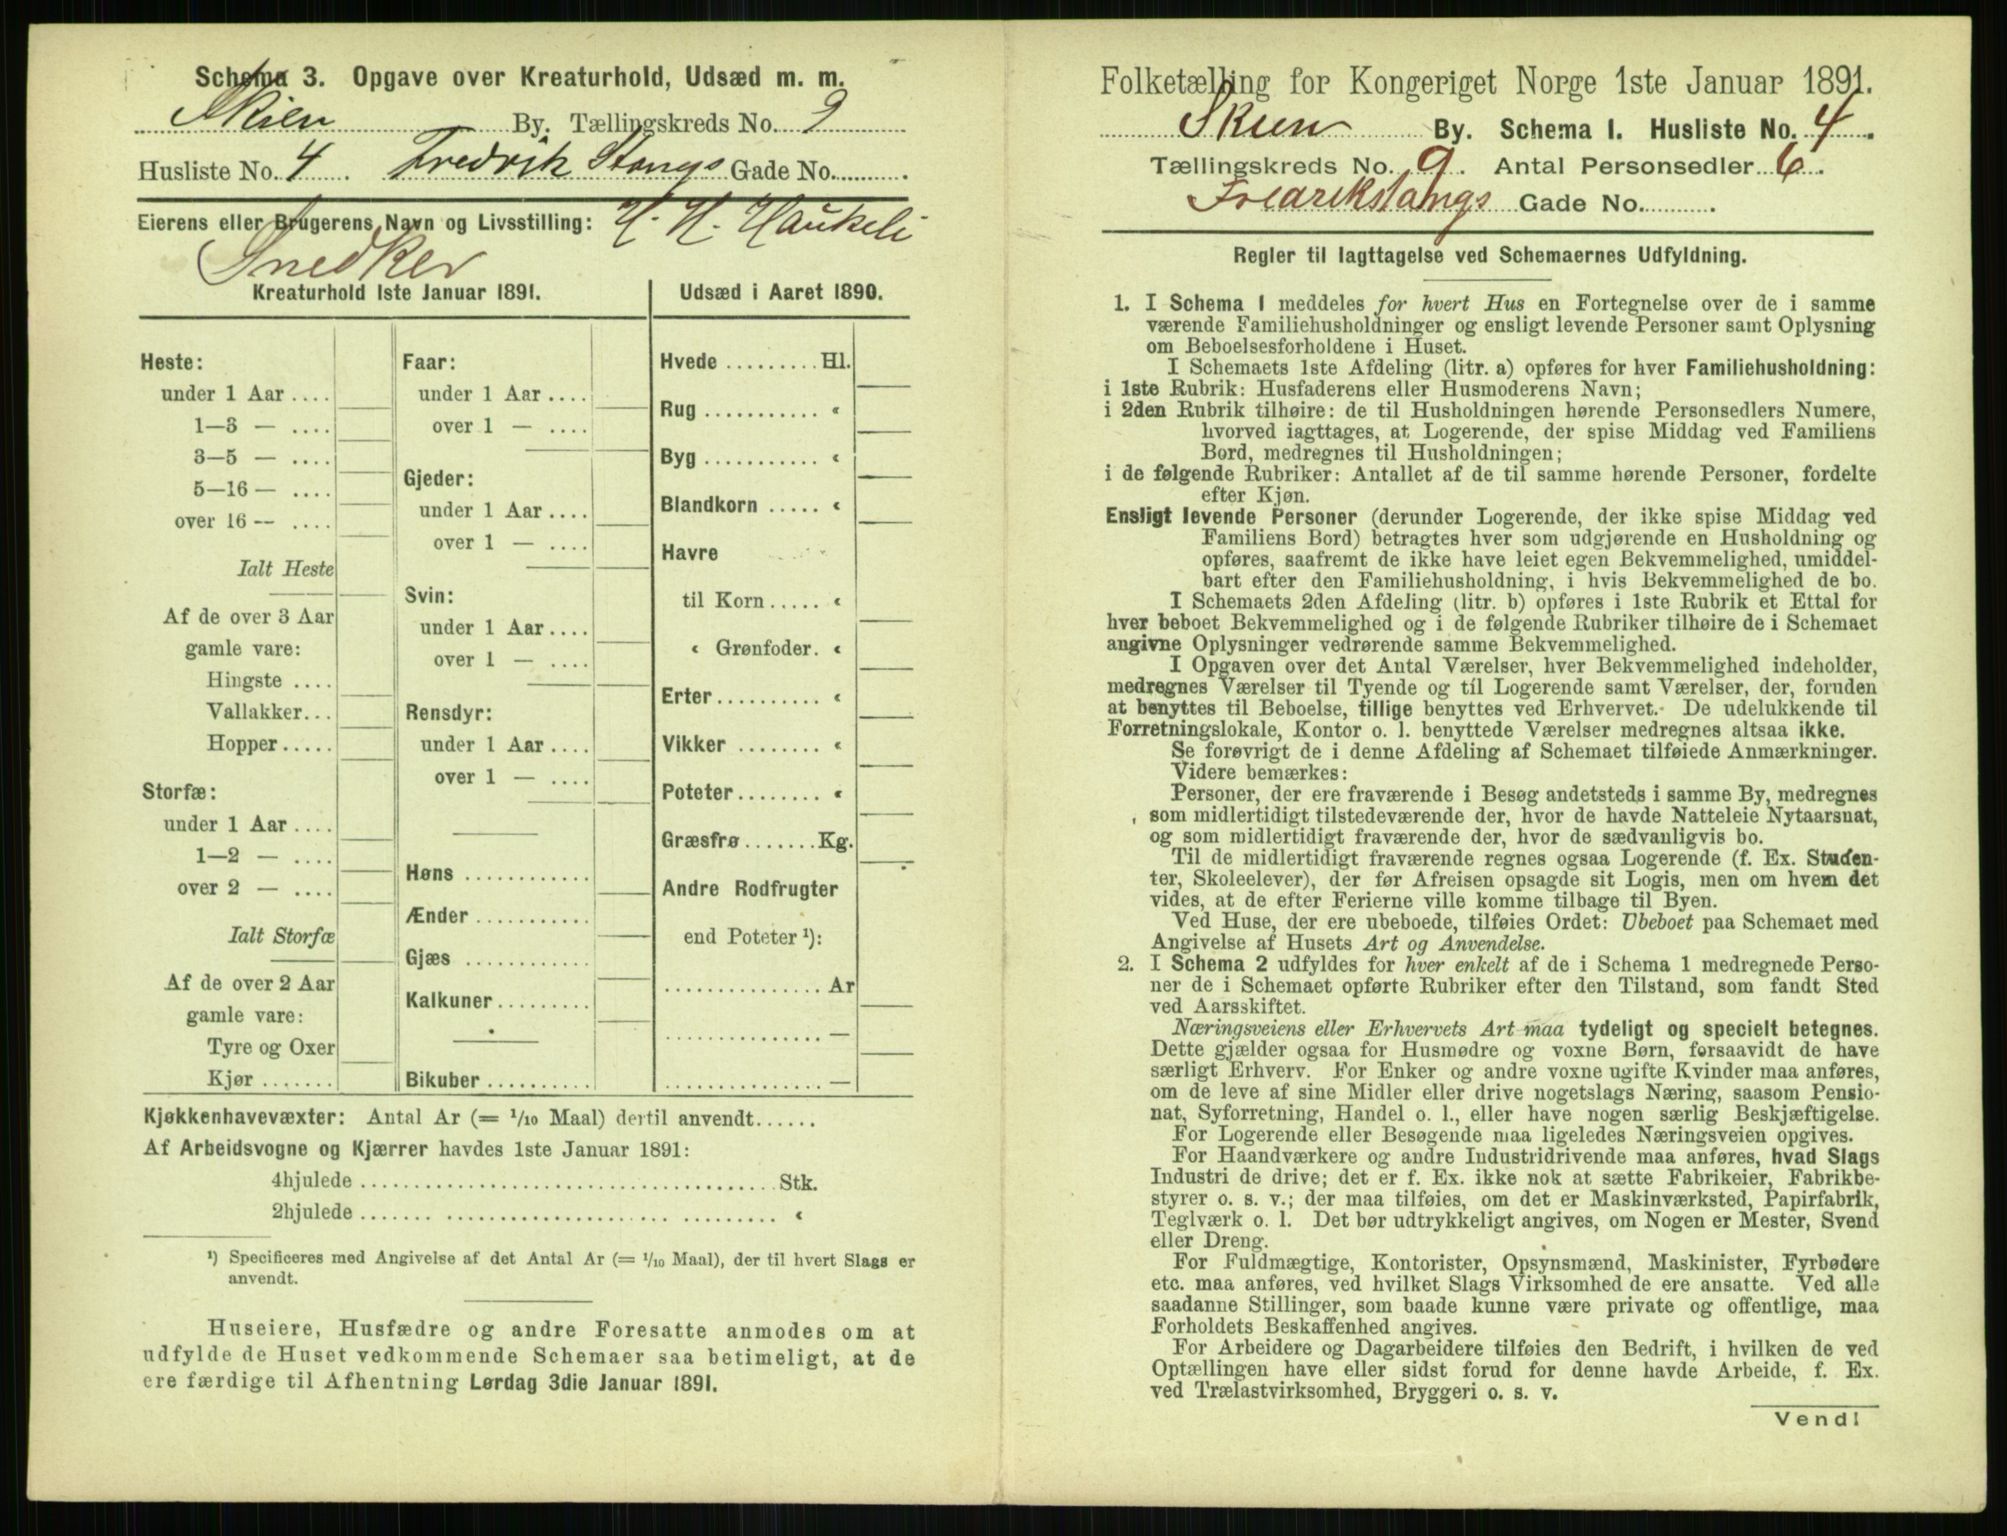 Schema 3. Opgave over Kreaturhold, Udsæd m. m.
Skien By. Tællingskreds No. 9
Husliste No. 4. Fredrik Stangs Gade No.
Eierens eller Brugerens Navn og Livsstilling: H. H. Haukeli
Snedker
Kreaturhold 1ste Januar 1891.
Heste:
under 1 Aar ....
1—3 — ....
3—5 — ....
5—16 — ....
over 16 — ....
Ialt Heste
Af de over 3 Aar
gamle vare:
Hingste ....
Vallakker...
Hopper.....
Storfæ:
under 1 Aar ....
1—2 — ....
over 2 — ....
Ialt Storfæ
Af de over 2 Aar
gamle vare:
Tyre og Oxer
Kjør .......
Faar:
under 1 Aar ....
over 1 — ....
Gjeder:
under 1 Aar ....
over 1 — ....
Svin:
under 1 Aar ....
over 1 — ....
Rensdyr:
under 1 Aar ....
over 1 — ....
Høns ............
Ænder ...........
Gjæs ............
Kalkuner.........
Bikuber ..........
Udsæd i Aaret 1890.
Hvede ......... Hl.
Rug ........... «
Byg ........... «
Blandkorn ..... «
Havre
til Korn ..... «
« Grønfoder. «
Erter.......... «
Vikker ........ «
Poteter........ «
Græsfrø....... Kg.
Andre Rodfrugter
end Poteter ¹):
............... Ar
............... —
............... —
Kjøkkenhavevæxter: Antal Ar (= 1/10 Maal) dertil anvendt......
Af Arbeidsvogne og Kjærrer havdes 1ste Januar 1891:
4hjulede ........................................ Stk.
2hjulede ........................................ «
¹) Specificeres med Angivelse af det Antal Ar (= 1/10 Maal), der til hvert Slags er
anvendt.
Huseiere, Husfædre og andre Foresatte anmodes om at
udfylde de Huset vedkommende Schemaer saa betimeligt, at de
ere færdige til Afhentning Lørdag 3die Januar 1891.
Folketælling for Kongeriget Norge 1ste Januar 1891.
Skien By. Schema I. Husliste No. 4.
Tællingskreds No. 9. Antal Personsedler 6.
Fredrikstangs Gade No.
Regler til Iagttagelse ved Schemaernes Udfyldning.
1. I Schema I meddeles for hvert Hus en Fortegnelse over de i samme
værende Familiehusholdninger og ensligt levende Personer samt Oplysning
om Beboelsesforholdene i Huset.
I Schemaets 1ste Afdeling (litr. a) opføres for hver Familiehusholdning:
i 1ste Rubrik: Husfaderens eller Husmoderens Navn;
i 2den Rubrik tilhøire: de til Husholdningen hørende Personsedlers Numere,
hvorved iagttages, at Logerende, der spise Middag ved Familiens
Bord, medregnes til Husholdningen;
i de følgende Rubriker: Antallet af de til samme hørende Personer, fordelte
efter Kjøn.
Ensligt levende Personer (derunder Logerende, der ikke spise Middag ved
Familiens Bord) betragtes hver som udgjørende en Husholdning og
opføres, saafremt de ikke have leiet egen Bekvemmelighed, umiddel-
bart efter den Familiehusholdning, i hvis Bekvemmelighed de bo.
I Schemaets 2den Afdeling (litr. b) opføres i 1ste Rubrik et Ettal for
hver beboet Bekvemmelighed og i de følgende Rubriker tilhøire de i Schemaet
angivne Oplysninger vedrørende samme Bekvemmelighed.
I Opgaven over det Antal Værelser, hver Bekvemmelighed indeholder,
medregnes Værelser til Tyende og til Logerende samt Værelser, der, foruden
at benyttes til Beboelse, tillige benyttes ved Erhvervet. De udelukkende til
Forretningslokale, Kontor o. l. benyttede Værelser medregnes altsaa ikke.
Se forøvrigt de i denne Afdeling af Schemaet tilføiede Anmærkninger.
Videre bemærkes:
Personer, der ere fraværende i Besøg andetsteds i samme By, medregnes
som midlertidigt tilstedeværende der, hvor de havde Natteleie Nytaarsnat,
og som midlertidigt fraværende der, hvor de sædvanligvis bo.
Til de midlertidigt fraværende regnes ogsaa Logerende (f. Ex. Studen-
ter, Skoleelever), der før Afreisen opsagde sit Logis, men om hvem det
vides, at de efter Ferierne ville komme tilbage til Byen.
Ved Huse, der ere ubeboede, tilføies Ordet: Ubeboet paa Schemaet med
Angivelse af Husets Art og Anvendelse.
2. I Schema 2 udfyldes for hver enkelt af de i Schema 1 medregnede Perso-
ner de i Schemaet opførte Rubriker efter den Tilstand, som fandt Sted
ved Aarsskiftet.
Næringsveiens eller Erhvervets Art maa tydeligt og specielt betegnes.
Dette gjælder ogsaa for Husmødre og voxne Børn, forsaavidt de have
særligt Erhverv. For Enker og andre voxne ugifte Kvinder maa anføres,
om de leve af sine Midler eller drive nogetslags Næring, saasom Pensio-
nat, Syforretning, Handel o. l., eller have nogen særlig Beskjæftigelse.
For Logerende eller Besøgende maa ligeledes Næringsveien opgives.
For Haandværkere og andre Industridrivende maa anføres, hvad Slags
Industri de drive; det er f. Ex. ikke nok at sætte Fabrikeier, Fabrikbe-
styrer o. s. v.; der maa tilføies, om det er Maskinværksted, Papirfabrik,
Teglværk o. l. Det bør udtrykkeligt angives, om Nogen er Mester, Svend
eller Dreng.
For Fuldmægtige, Kontorister, Opsynsmænd, Maskinister, Fyrbødere
etc. maa anføres, ved hvilket Slags Virksomhed de ere ansatte. Ved alle
saadanne Stillinger, som baade kunne være private og offentlige, maa
Forholdets Beskaffenhed angives.
For Arbeidere og Dagarbeidere tilføies den Bedrift, i hvilken de ved
Optællingen have eller sidst forud for denne havde Arbeide, f. Ex.
ved Trælastvirksomhed, Bryggeri o. s. v.
Vend!